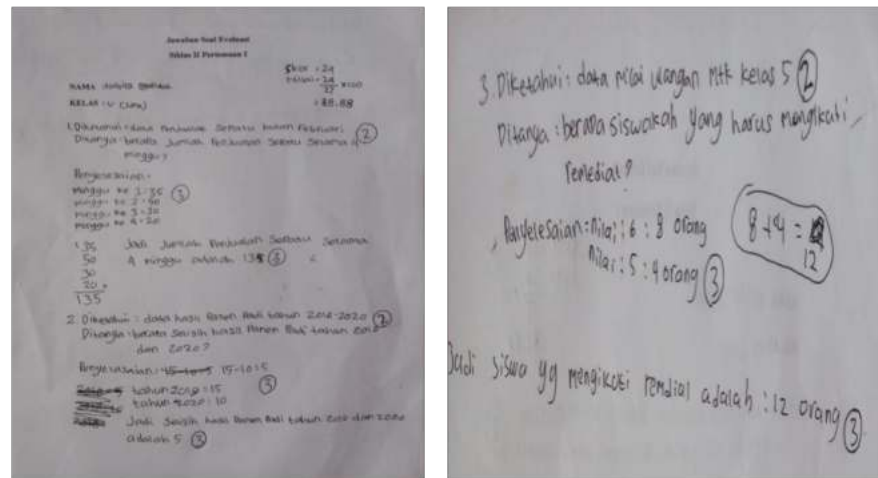 Jawaban Soal Evaluasi
Siklus II Pertemuan I
Skor = 24
NAMA
Nilai = 24 x 100
27
KELAS : V (Lima)
= 88.88
1. Diketahui : data Penjualan Sepatu bulan Februari
Ditanya : berapa Jumlah Penjualan Sepatu Selama 4 (2)
minggu?
Penyelesaian :
minggu ke 1 = 35 (3)
minggu ke 2 = 50
minggu ke 3 = 30
minggu ke 4 = 20
35 Jadi Jumlah Penjualan Sepatu Selama
50 4 minggu adalah 135
30
20 +
135
2. Diketahui : data hasil Panen Padi tahun 2016-2020 (2)
Ditanya : berapa Selisih hasil Panen Padi tahun
dan 2020?
Penyelesaian : 15-10=5
tahun : 15 (3)
tahun 2020 : 10
Jadi Selisih hasil Panen Padi tahun dan 2020
adalah 5 (3)
3. Diketahui : data nilai ulangan Mtk kelas 5 (2)
Ditanya : berapa siswakah yang harus mengikuti
remedial?
Penyelesaian = Nilai : 6 : 8 orang 8 + 4 =
Nilai : 5 : 4 orang (3) 12
Jadi siswa yg mengikuti remdial adalah : 12 orang (3)